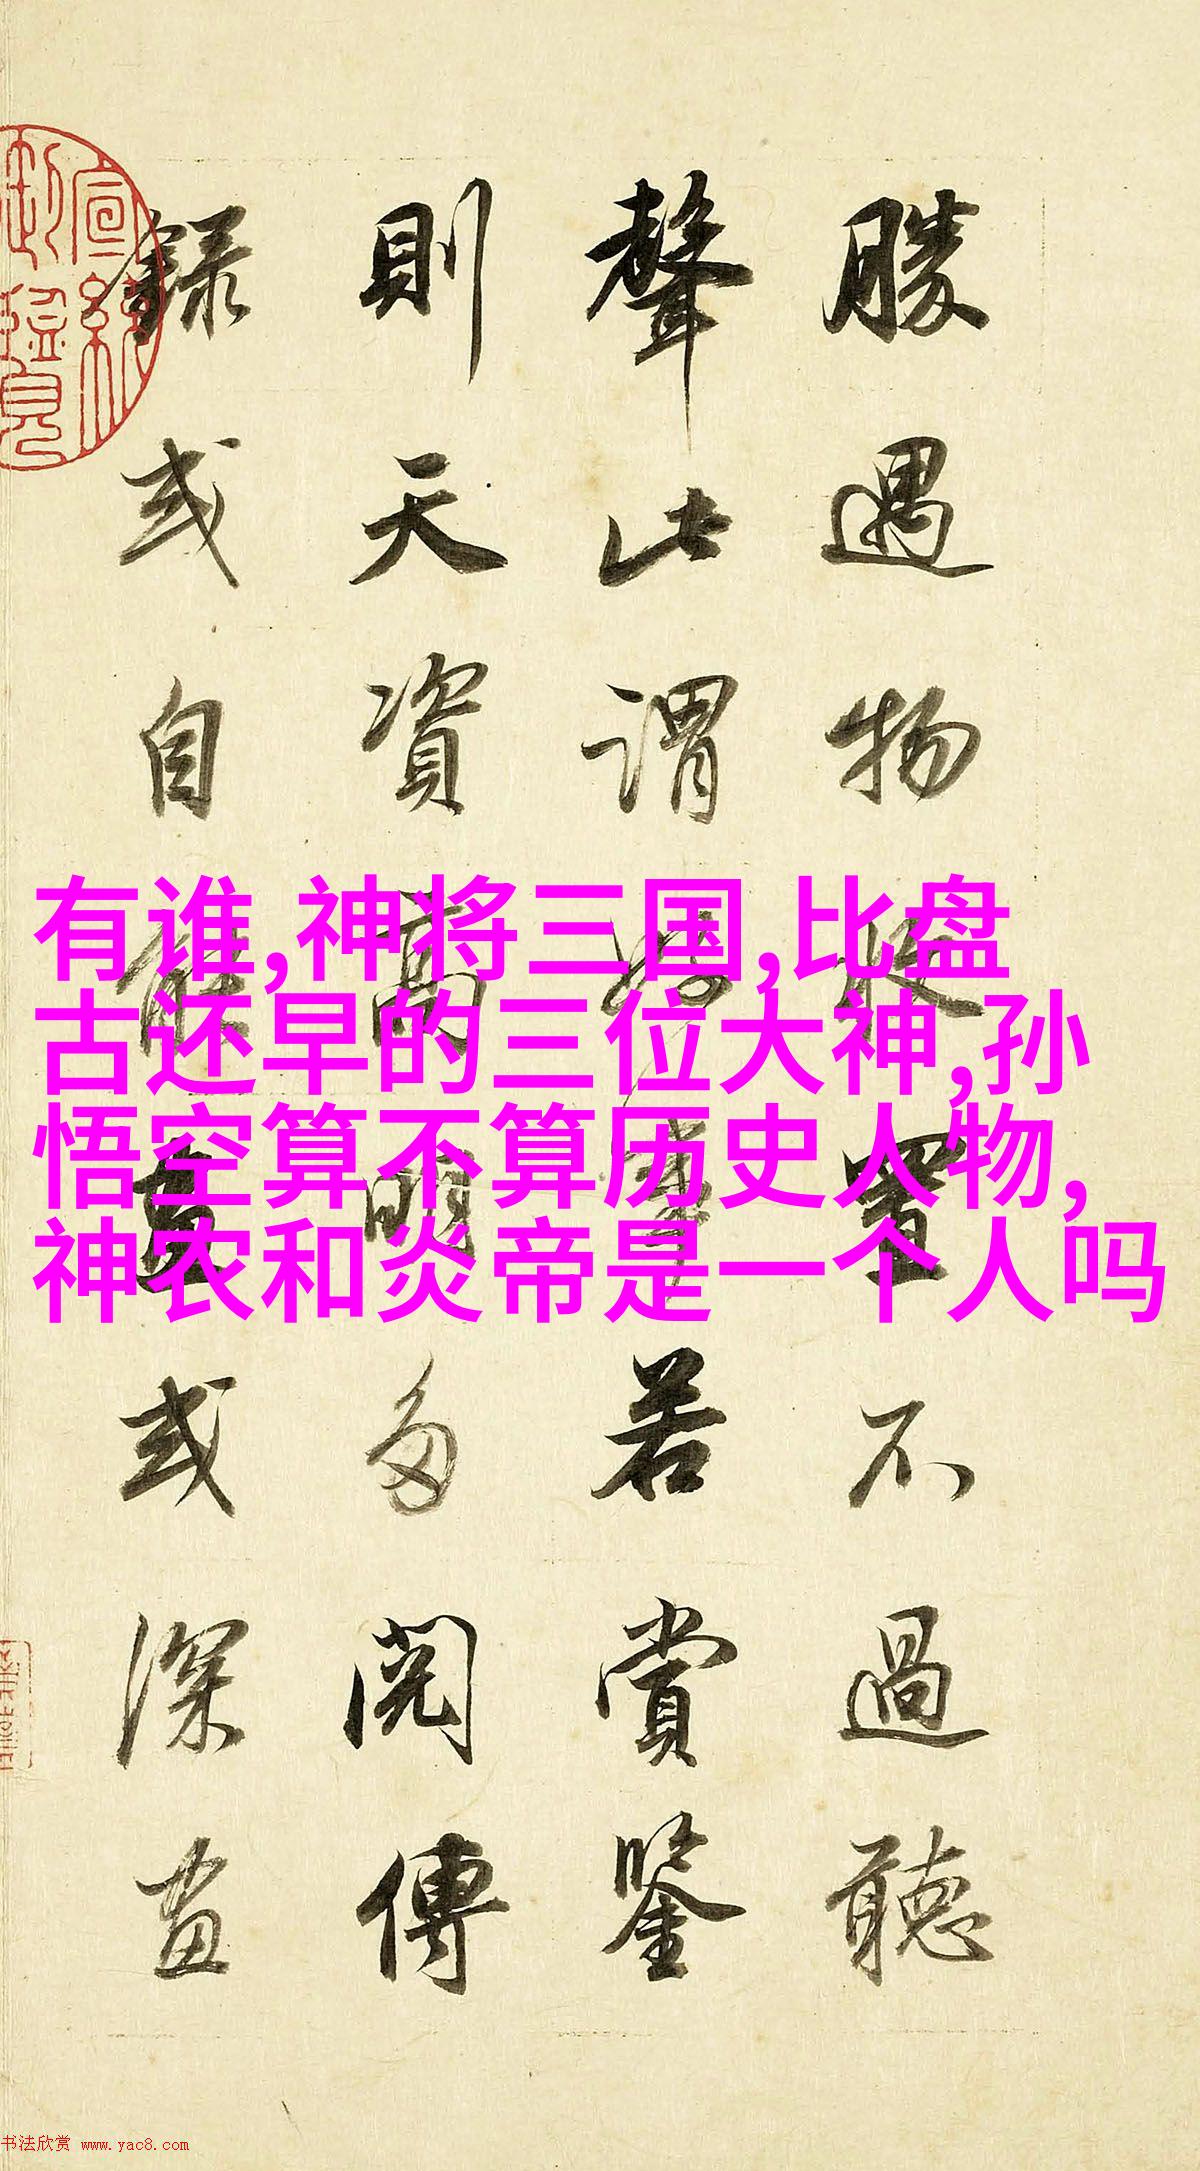 勝遇物收置不過聽
聲此謂好事若賞鑒
則天資高明多閱傳
錄或自能畫或深畫
有谁,神将三国,比盘
古还早的三位大神,孙
悟空算不算历史人物,
神农和炎帝是一个人吗
书法欣赏 www.yac8.com